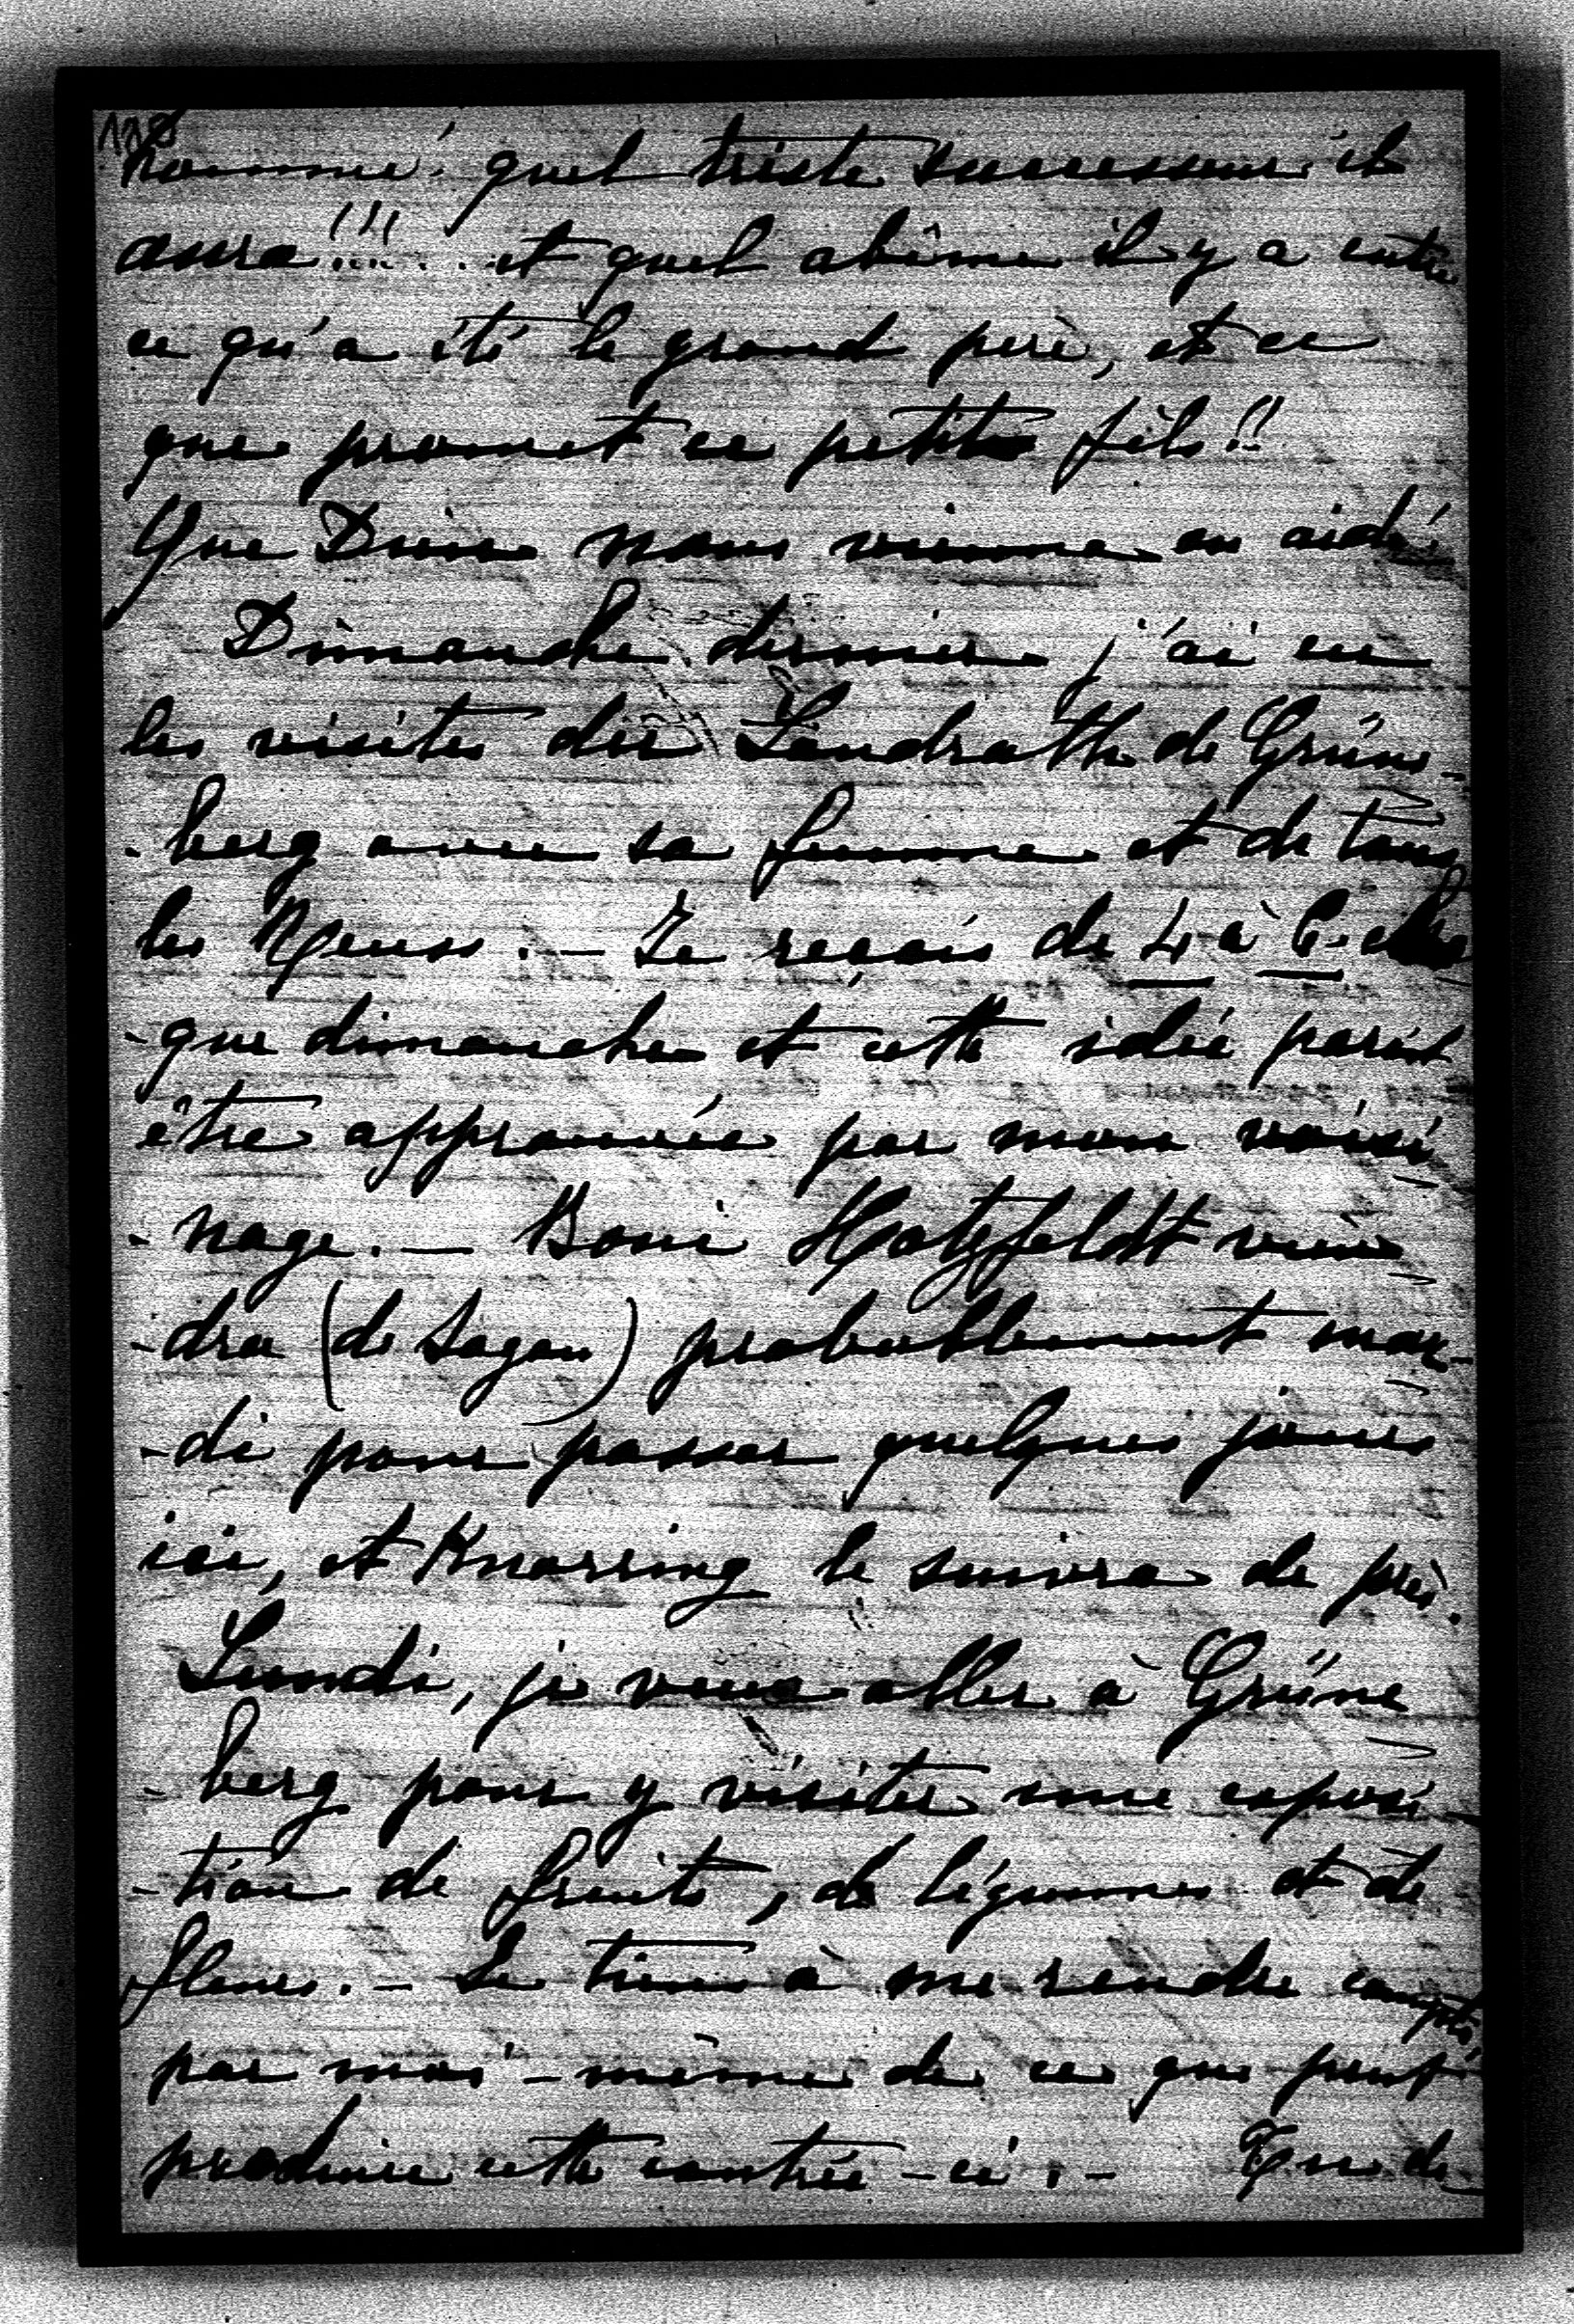 128
nommé! quel triste successeur il
aura!!!... et quel abîme il y a entre
ce qu'a été le grand père, et ce
que promet ce petit fils!!
Que Dieu nous vienne en aide!
Dimanche dernier j'ai eu
les visites du Landrath de Grüne-
-berg avec sa femme et de tous
les Neuss. — Je reçois de 4 à 6. cha
-que dimanche et cette idée parait
être approuvée par mon voisi
-nage. — Boni Hatzfeldt vien
-dra (de Sagan) probablement mar-
-di pour passer quelques jours
ici, et Knorring le suivra de près.
Lundi, je veux aller à Grüne
-berg pour y visiter une exposi-
-tion de fruits, de légumes et de
fleurs. — Je tiens à me rendre compte,
par moi-même de ce que peut
produire cette contrée-ci. — Que de